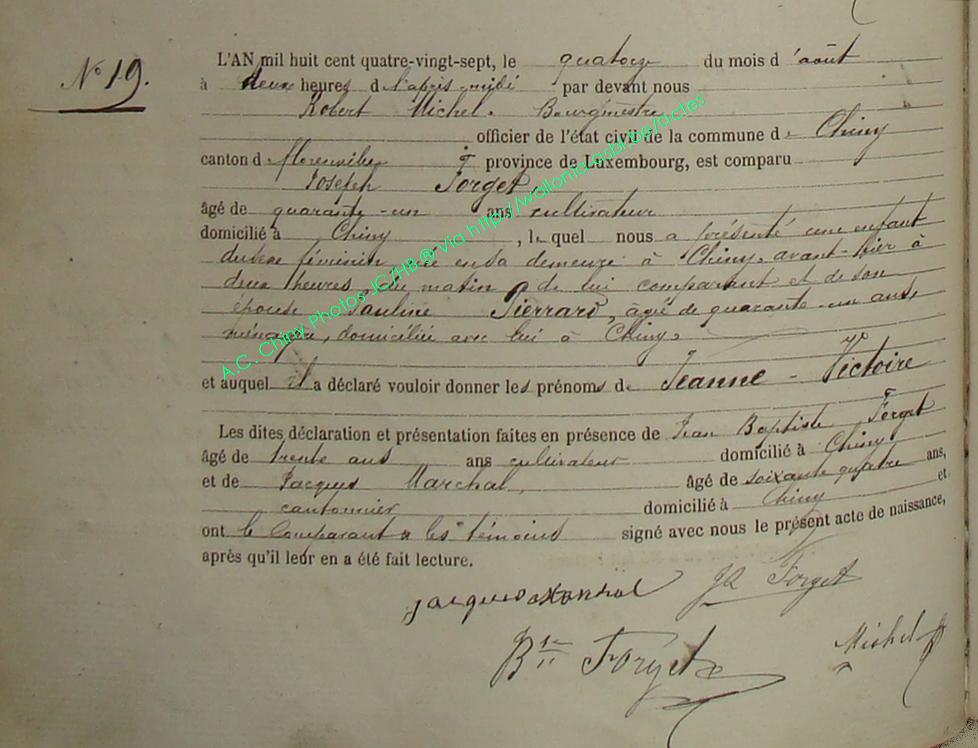 N° 19.
L'AN mil huit cent quatre-vingt-sept, le quatorze du mois d'août
à deux heures de l'après-midi par devant nous
Robert Michel. Bourgmestre
officier de l'état civil de la commune de Chiny
canton de Florenville, province de Luxembourg, est comparu
Joseph Forget,
âgé de quarante-un ans cultivateur
domicilié à Chiny, lequel nous a présenté une enfant
du sexe féminin née en sa demeure à Chiny, avant-hier à
deux heures du matin de lui comparant et de son
épouse Pauline Pierrard, âgée de quarante-un ans,
ménagère, domiciliée avec lui à Chiny,
et auquel il a déclaré vouloir donner les prénoms de Jeanne-Victoire
Les dites déclaration et présentation faites en présence de Jean Baptiste Forget
âgé de trente ans ans cultivateur domicilié à Chiny
et de Jacques Marchal, âgé de soixante quatre ans,
cantonnier domicilié à Chiny et
ont le comparant & les témoins signé avec nous le présent acte de naissance,
après qu'il leur en a été fait lecture.
Jacques Marchal
Forget
Bte Forget
Michel R
A.C. Chiny Photos JC/HB @ Via http://wallonia.asbl.be/actes